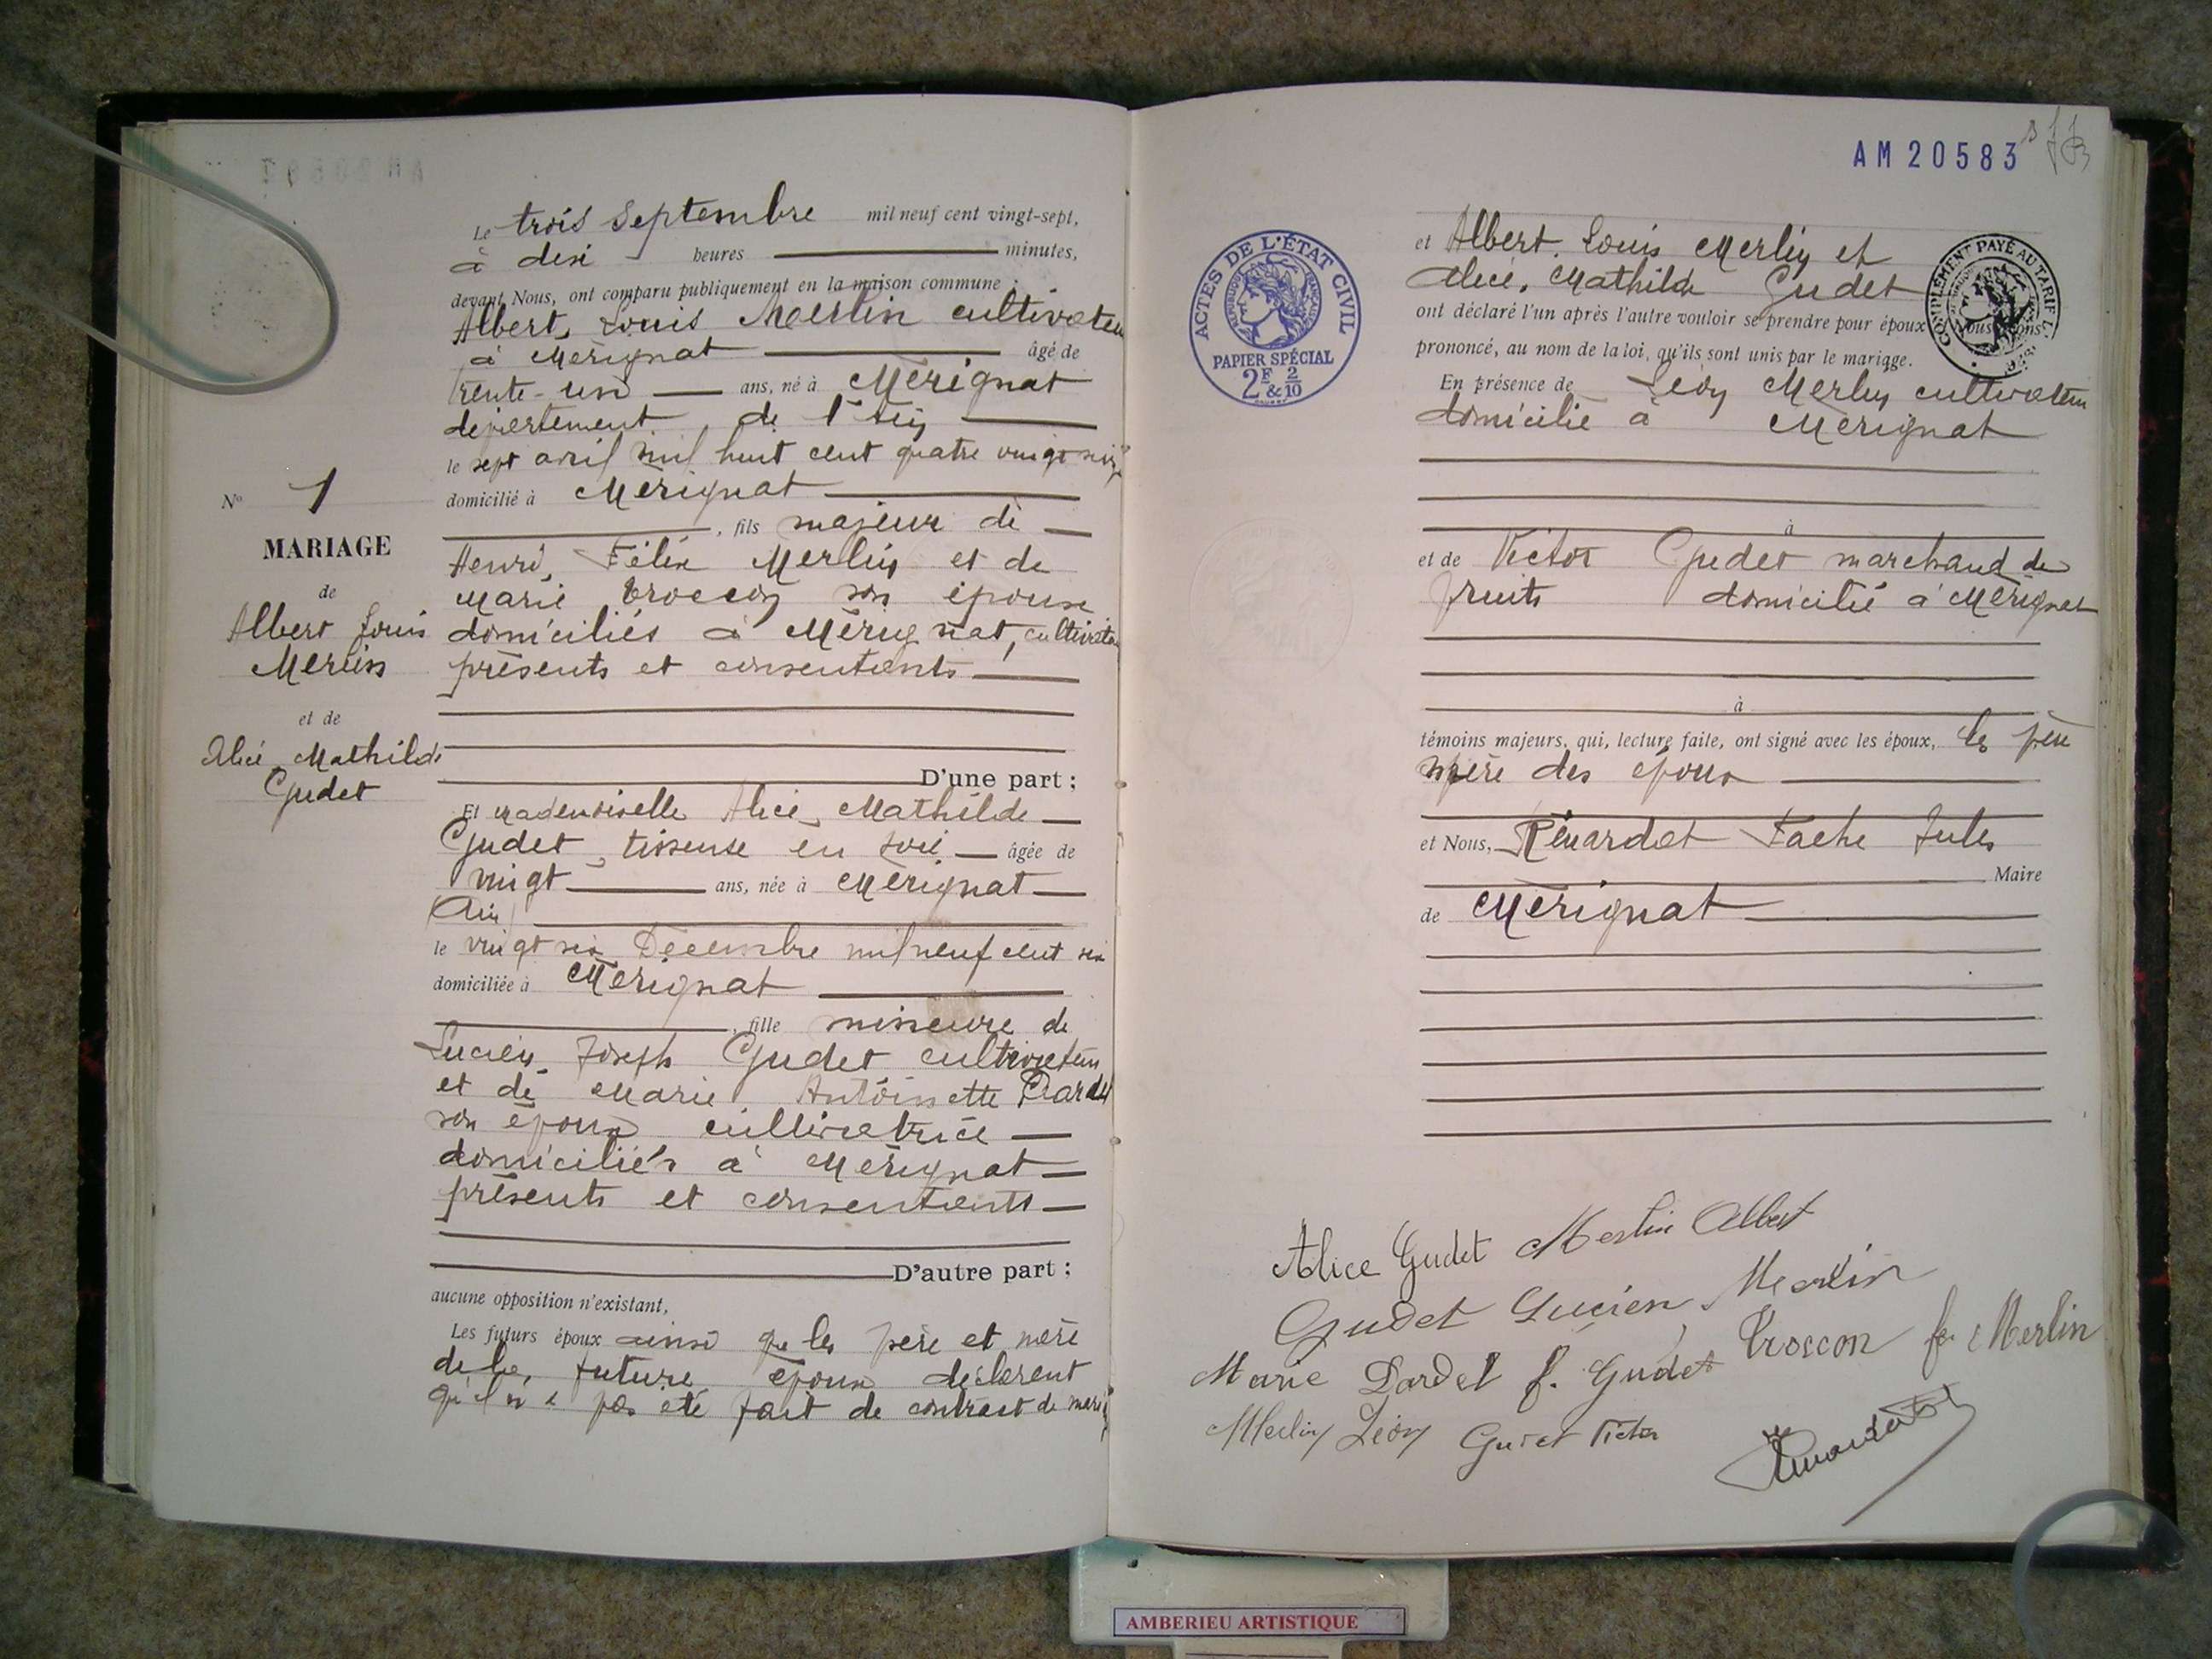 Le trois Septembre mil neuf cent vingt-sept,
à dix heures minutes,
devant Nous, ont comparu publiquement en la maison commune :
Albert, Louis Merlin cultivateur
à Mérignat âgé de
trente-un ans, né à Mérignat
département de l'Ain
le sept avril mil huit cent quatre vingt seize
domicilié à Mérignat
, fils majeur de
Henri, Félix Merlin et de
Marie Troccon son épouse
domiciliés à Mérignat, cultivateurs
présents et consentants
D'une part ;
N° 1
MARIAGE
de
Albert Louis
Merlin
et de
Alice Mathilde
Gudet
Et mademoiselle Alice, Mathilde
Gudet, tisseuse en soie âgée de
vingt ans, née à Mérignat
(Ain)
le vingt six Décembre mil neuf cent six
domiciliée à Mérignat
, fille mineure de
Lucien Joseph Gudet cultivateur
et de Marie Antoinette Dardet
son épouse cultivatrice
domiciliés à Mérignat
présents et consentants
D'autre part ;
aucune opposition n'existant,
Les futurs époux ainsi que les père et mère
de la future épouse déclarent
qu'il n'a pas été fait de contrat de mariage
AM 20583
ACTES DE L'ÉTAT CIVIL
PAPIER SPÉCIAL
2F & 2/10
COMPLÉMENT PAYÉ AU TARIF
et Albert. Louis Merlin et
Alice, Mathilde Gudet
ont déclaré l'un après l'autre vouloir se prendre pour époux Nous avons
prononcé, au nom de la loi, qu'ils sont unis par le mariage.
En présence de Léon Merlin cultivateur
domicilié à Mérignat
à
et de Victor Gudet marchand de
fruits domicilié à Mérignat
à
témoins majeurs, qui, lecture faite, ont signé avec les époux, les père
mère des époux
et Nous, Rénardat Fache Jules
Maire
de Mérignat
Alice Gudet Merlin Albert
Gudet Lucien Merlin
Marie Dardet f. Gudet Troccon fe Merlin
Merlin Léon Gudet Victor
AMBERIEU ARTISTIQUE